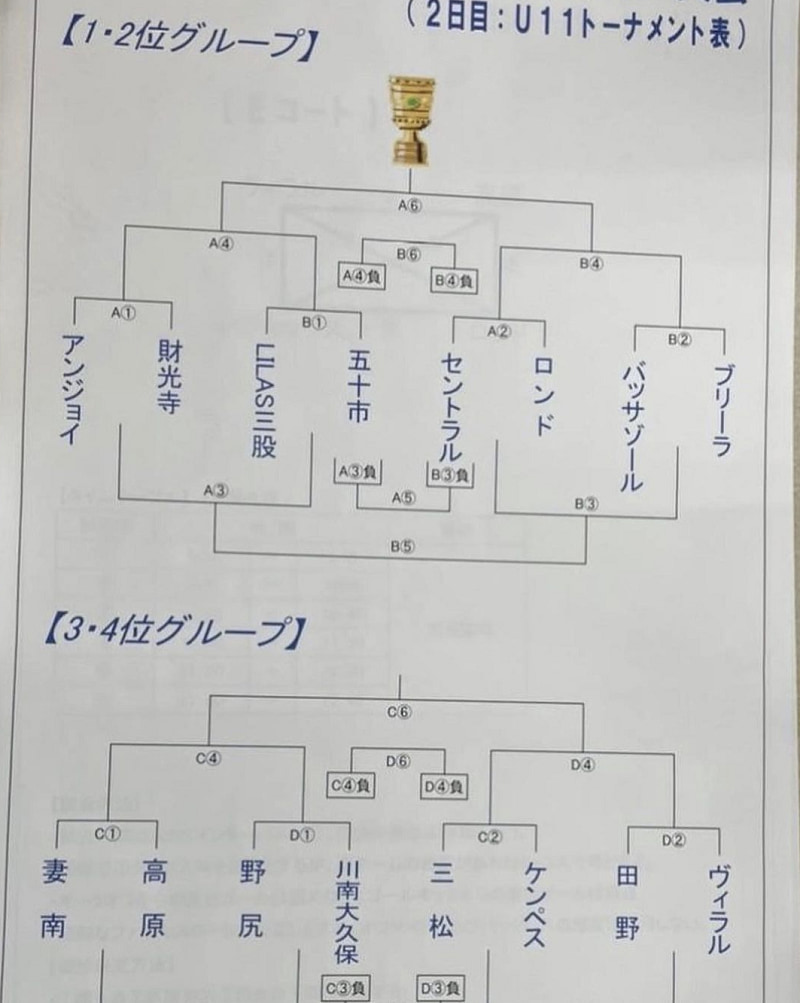 (2日目:U11トーナメント表)
【1・2位グループ】
A⑥
A④
B⑥
B④
A④負
B④負
A①
B①
A②
B②
アンジョイ
財光寺
LILAS三股
五十市
セントラル
ロンド
バッサゾール
ブリーラ
A③負
B③負
A③
A⑤
B③
B⑤
【3・4位グループ】
C⑥
C④
D⑥
D④
C④負
D④負
C①
D①
C②
D②
妻南
高原
野尻
川南大久保
三松
ケンペス
田野
ヴィラル
C③負
D③負